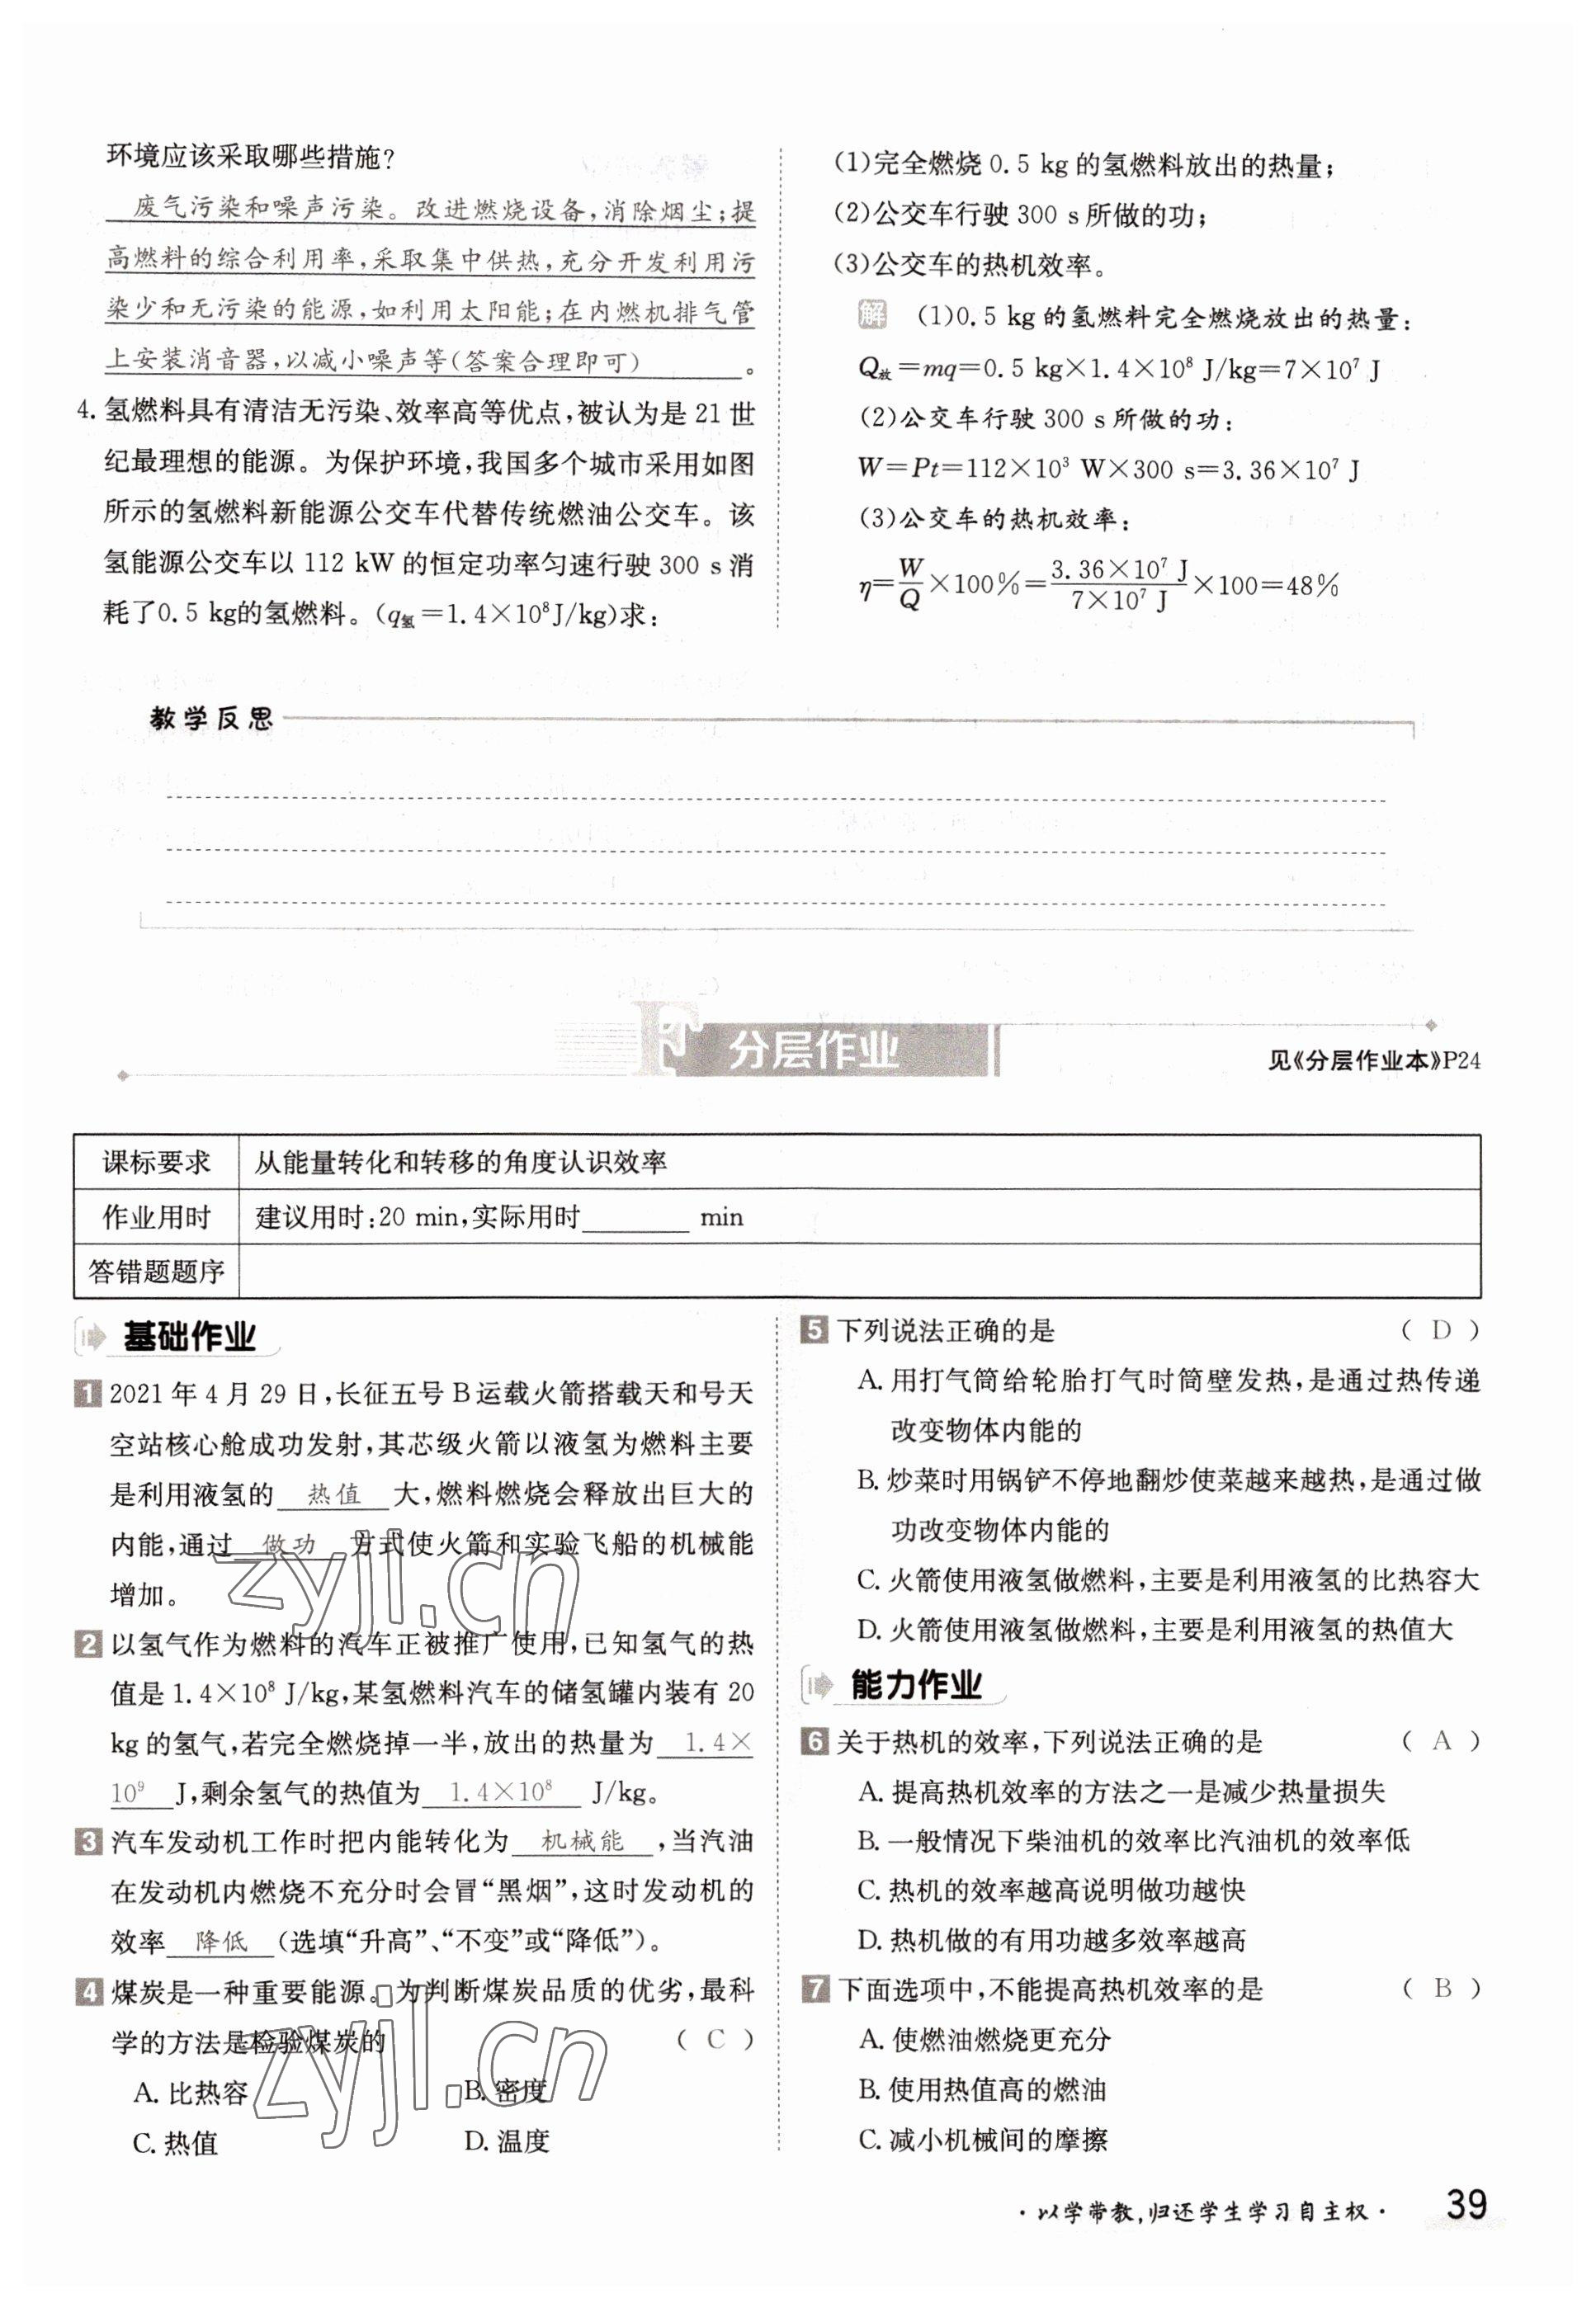 环境应该采取哪些措施?
废气污染和噪声污染。改进燃烧设备,消除烟尘;提
高燃料的综合利用率,采取集中供热,充分开发利用污
染少和无污染的能源,如利用太阳能;在内燃机排气管
上安装消音器,以减小噪声等(答案合理即可)。
4. 氢燃料具有清洁无污染、效率高等优点,被认为是 21 世
纪最理想的能源。为保护环境,我国多个城市采用如图
所示的氢燃料新能源公交车代替传统燃油公交车。该
氢能源公交车以 112 kW 的恒定功率匀速行驶 300 s 消
耗了0.5 kg的氢燃料。(q氢=1.4×10⁸J/kg)求:
(1)完全燃烧 0.5 kg 的氢燃料放出的热量;
(2)公交车行驶 300 s 所做的功;
(3)公交车的热机效率。
解 (1)0.5 kg 的氢燃料完全燃烧放出的热量:
Q放=mq=0.5 kg×1.4×10⁸ J/kg=7×10⁷ J
(2)公交车行驶 300 s 所做的功:
W=Pt=112×10³ W×300 s=3.36×10⁷ J
(3)公交车的热机效率:
η=W/Q×100%=3.36×10⁷ J/7×10⁷ J×100=48%
教学反思
F 分层作业
见《分层作业本》P24
课标要求 从能量转化和转移的角度认识效率
作业用时 建议用时:20 min,实际用时________ min
答错题题序
基础作业
1 2021 年 4 月 29 日,长征五号 B 运载火箭搭载天和号天
空站核心舱成功发射,其芯级火箭以液氢为燃料主要
是利用液氢的 热值 大,燃料燃烧会释放出巨大的
内能,通过 做功 方式使火箭和实验飞船的机械能
增加。
2 以氢气作为燃料的汽车正被推广使用,已知氢气的热
值是 1.4×10⁸ J/kg,某氢燃料汽车的储氢罐内装有 20
kg 的氢气,若完全燃烧掉一半,放出的热量为 1.4×
10⁹ J,剩余氢气的热值为 1.4×10⁸ J/kg。
3 汽车发动机工作时把内能转化为 机械能 ,当汽油
在发动机内燃烧不充分时会冒“黑烟”,这时发动机的
效率 降低 (选填“升高”、“不变”或“降低”)。
4 煤炭是一种重要能源。为判断煤炭品质的优劣,最科
学的方法是检验煤炭的 ( C )
A. 比热容 B. 密度
C. 热值 D. 温度
5 下列说法正确的是 ( D )
A. 用打气筒给轮胎打气时筒壁发热,是通过热传递
改变物体内能的
B. 炒菜时用锅铲不停地翻炒使菜越来越热,是通过做
功改变物体内能的
C. 火箭使用液氢做燃料,主要是利用液氢的比热容大
D. 火箭使用液氢做燃料,主要是利用液氢的热值大
能力作业
6 关于热机的效率,下列说法正确的是 ( A )
A. 提高热机效率的方法之一是减少热量损失
B. 一般情况下柴油机的效率比汽油机的效率低
C. 热机的效率越高说明做功越快
D. 热机做的有用功越多效率越高
7 下面选项中,不能提高热机效率的是 ( B )
A. 使燃油燃烧更充分
B. 使用热值高的燃油
C. 减小机械间的摩擦
zyjl.cn
zyjl.cn
·以学带教,归还学生学习自主权· 39